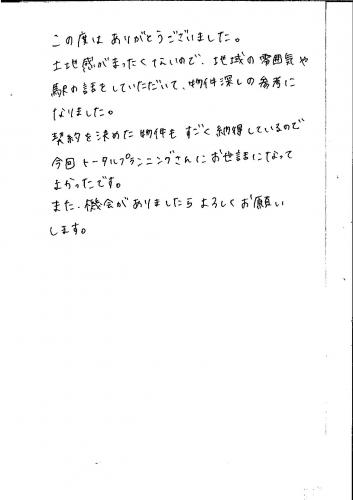 この度は ありがとうございました。
土地感がまったくないので、地域の雰囲気や
駅の話をしていただいて、物件深しの参考に
なりました。
契約を決めた物件も すごく納得しているので
今回 トータルプランニングさんにお世話になって
よかったです。
また、機会がありましたら よろしくお願い
します。